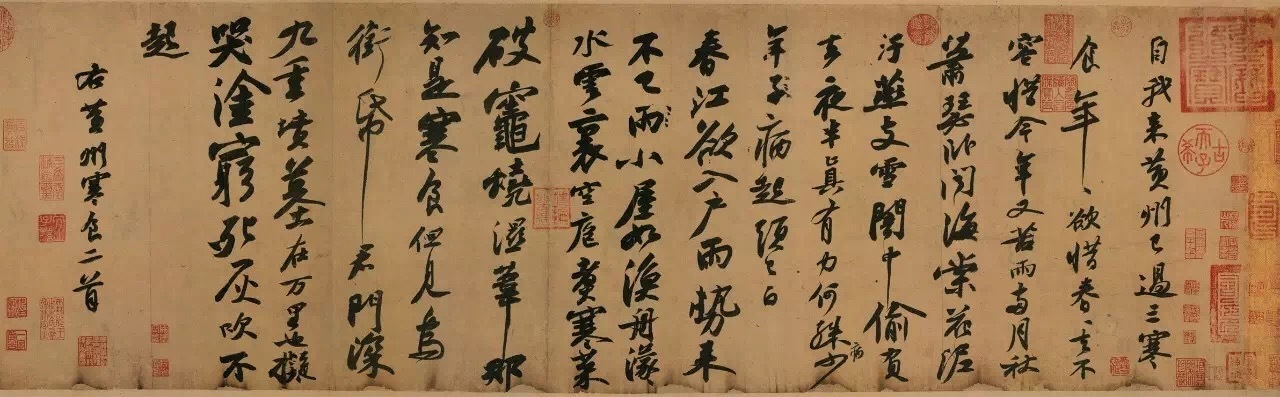 自我来黄州已過三寒
食年、欲惜春、去不
容惜今年又苦雨两月秋
蕭瑟卧聞海棠花泥
汙燕支雪闇中偷負
去夜半真有力何殊病少
年子病起頭已白
春江欲入户雨勢来
不已雨小屋如漁舟濛、
水雲裏空庖煮寒菜
破竈燒濕葦那
知是寒食但見烏
銜帋君門深
九重墳墓在万里也擬
哭塗窮死灰吹不
起
右黄州寒食二首
古希天子